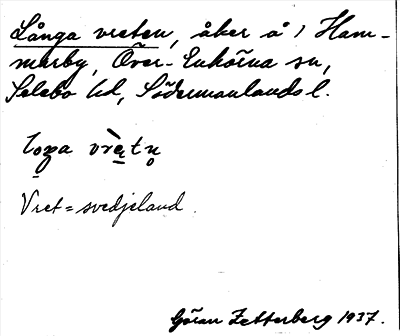 Långa vreten, åker å 1 Ham-
marby, Över-Enhörna sn,
Selebo hd, Södermanlands l.
loŋa vrètn̥
Vret = svedjeland.
Göran Zetterberg 1937.